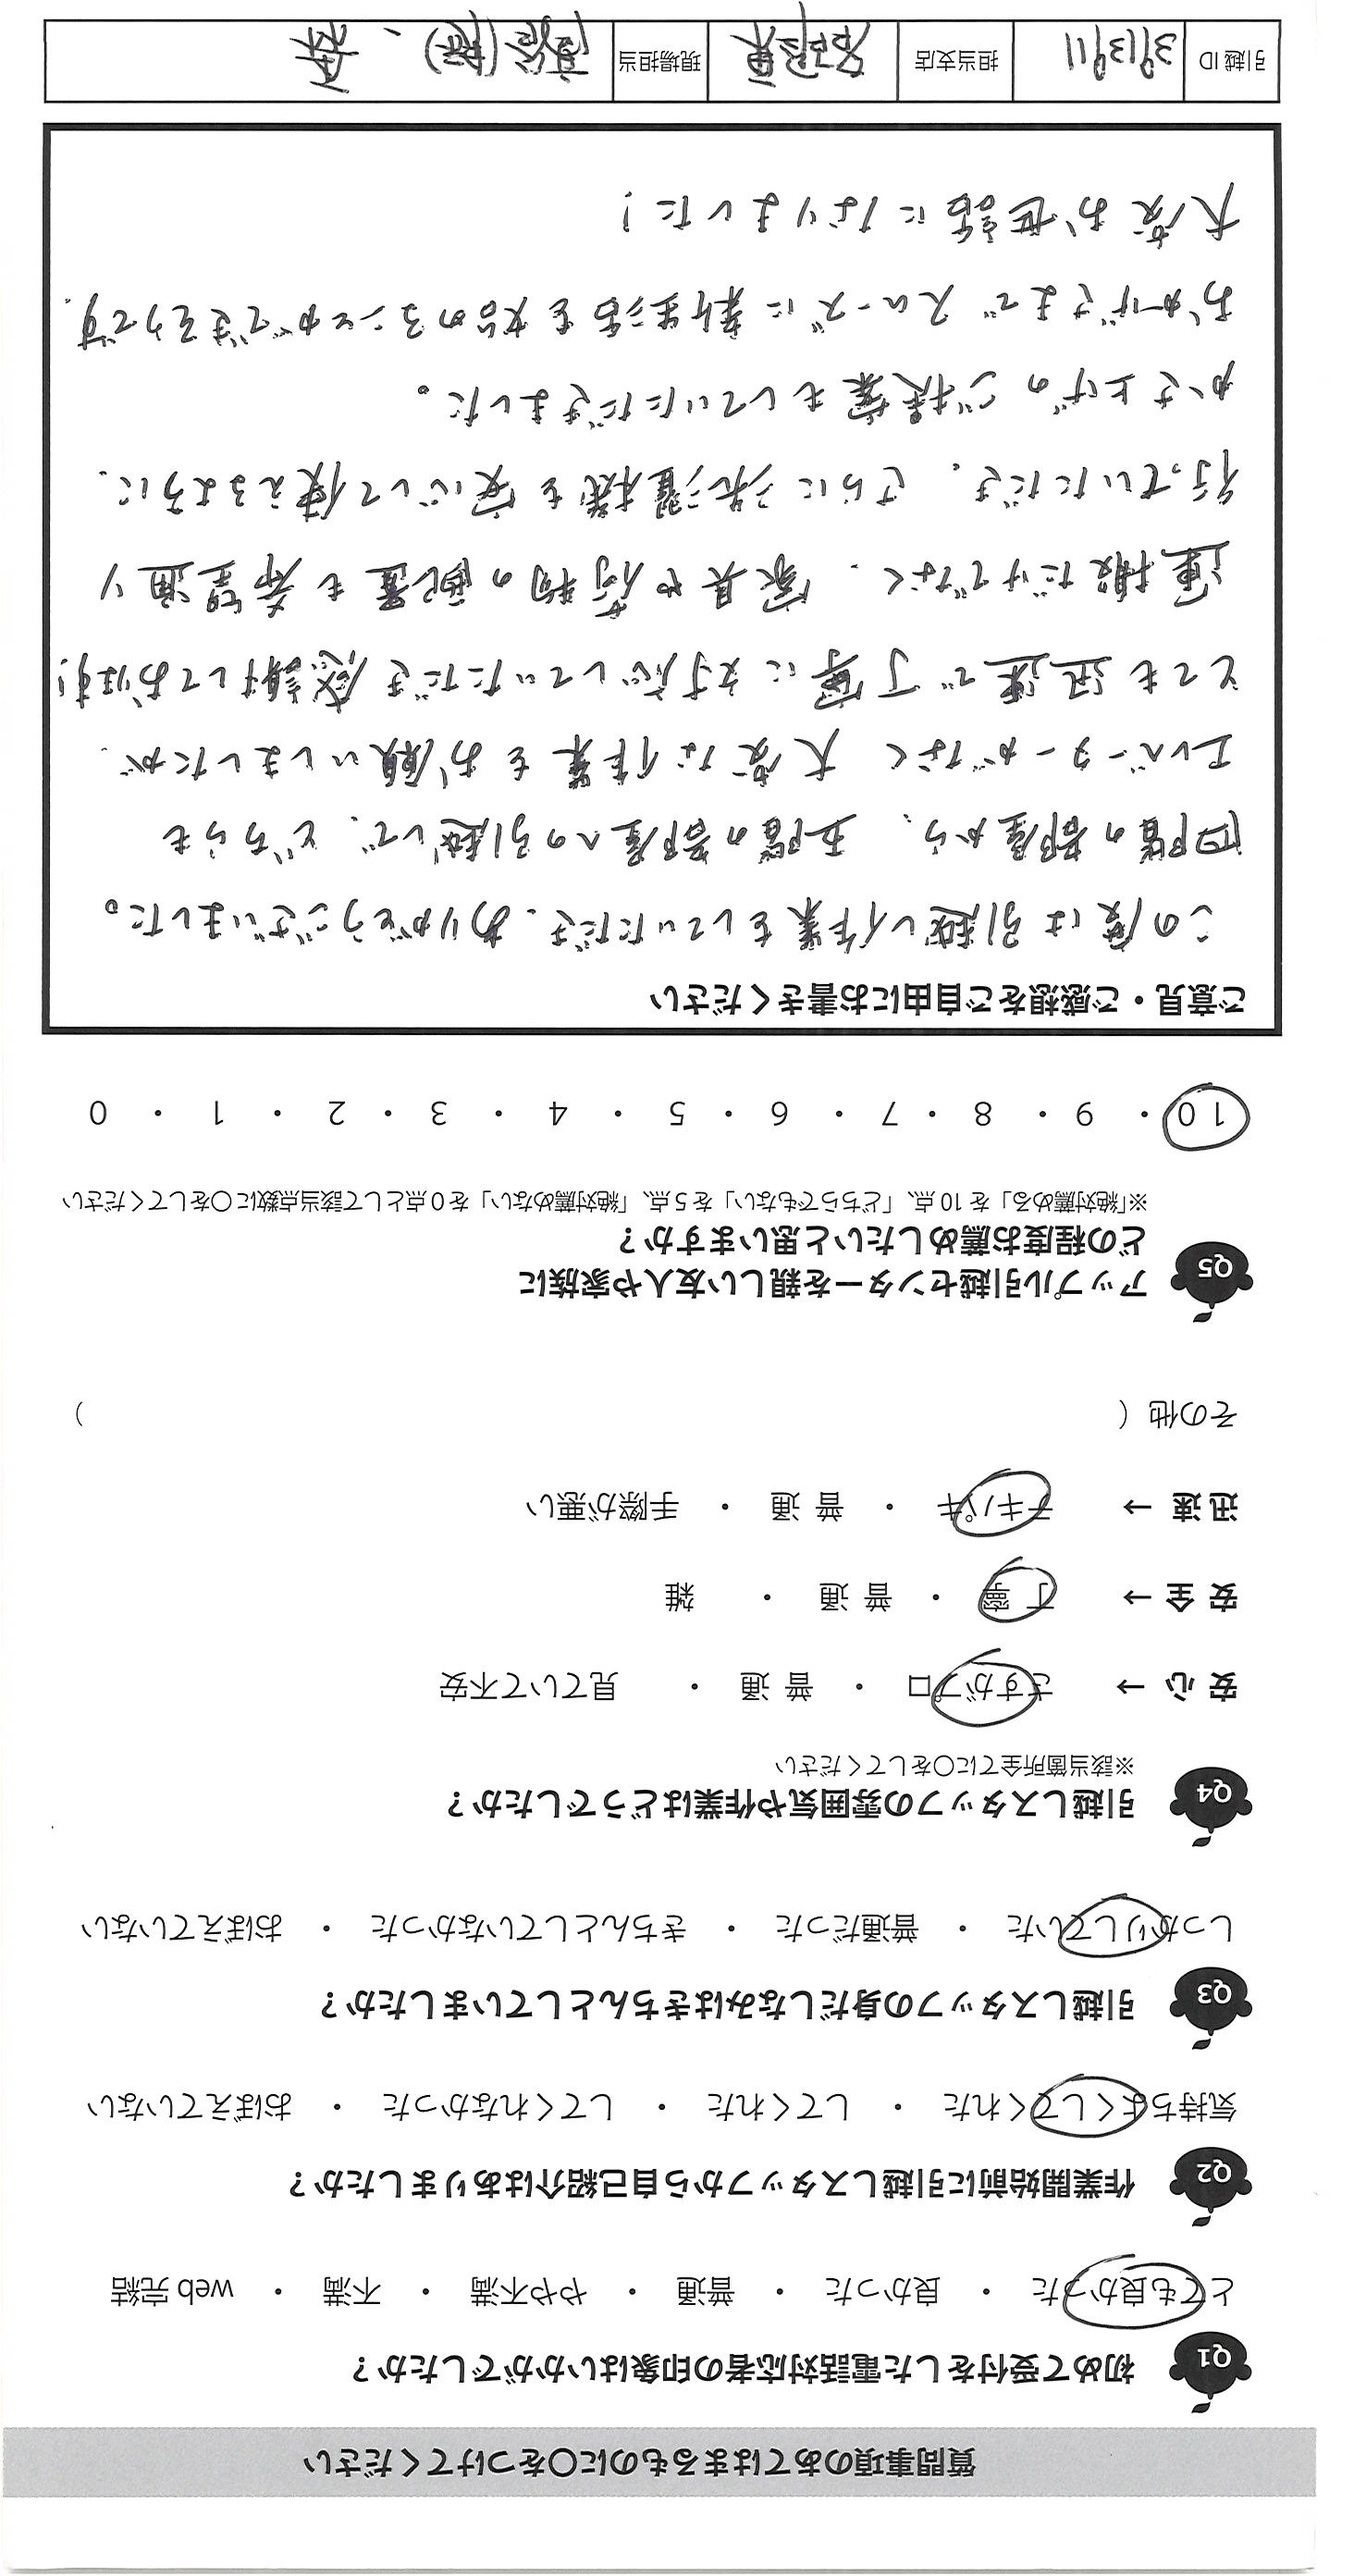 質問事項のあてはまるものに〇をつけてください
Q1 初めて受付をした電話対応者の印象はいかがでしたか？
とても良かった ・ 良かった ・ 普通 ・ やや不満 ・ 不満 ・ web 完結
Q2 作業開始前に引越しスタッフから自己紹介はありましたか？
気持ちよくしてくれた ・ してくれた ・ してくれなかった ・ おぼえていない
Q3 引越しスタッフの身だしなみはきちんとしていましたか？
しっかりしていた ・ 普通だった ・ きちんとしていなかった ・ おぼえていない
Q4 引越しスタッフの雰囲気や作業はどうでしたか？
※該当箇所全てに〇をしてください
安 心 → さすがプロ ・ 普 通 ・ 見ていて不安
安 全 → 丁 寧 ・ 普 通 ・ 雑
迅 速 → テキパキ ・ 普 通 ・ 手際が悪い
その他（ ）
Q5 アップル引越センターを親しい友人や家族に
どの程度お薦めしたいと思いますか？
※「絶対薦める」を 10 点、「どちらでもない」を 5 点、「絶対薦めない」を 0 点として該当点数に〇をしてください
10 ・ 9 ・ 8 ・ 7 ・ 6 ・ 5 ・ 4 ・ 3 ・ 2 ・ 1 ・ 0
ご意見・ご感想をご自由にお書きください
この度は引越し作業をしていただき、ありがとうございました。
四階の部屋から、五階の部屋への引越しで、どちらも
エレベーターがなく 大変な作業をお願いしましたが、
とても迅速で丁寧に対応していただき感謝しております!
運搬だけでなく、家具や荷物の配置も希望通り
行っていただき、さらに洗濯機も安心して使えるように、
かさ上げのご提案もしていただきました。
おかげさまでスムーズに新生活を始めることができそうです。
大変お世話になりました!
引越 ID 3913911 担当支店 名古屋東 現場担当 、森